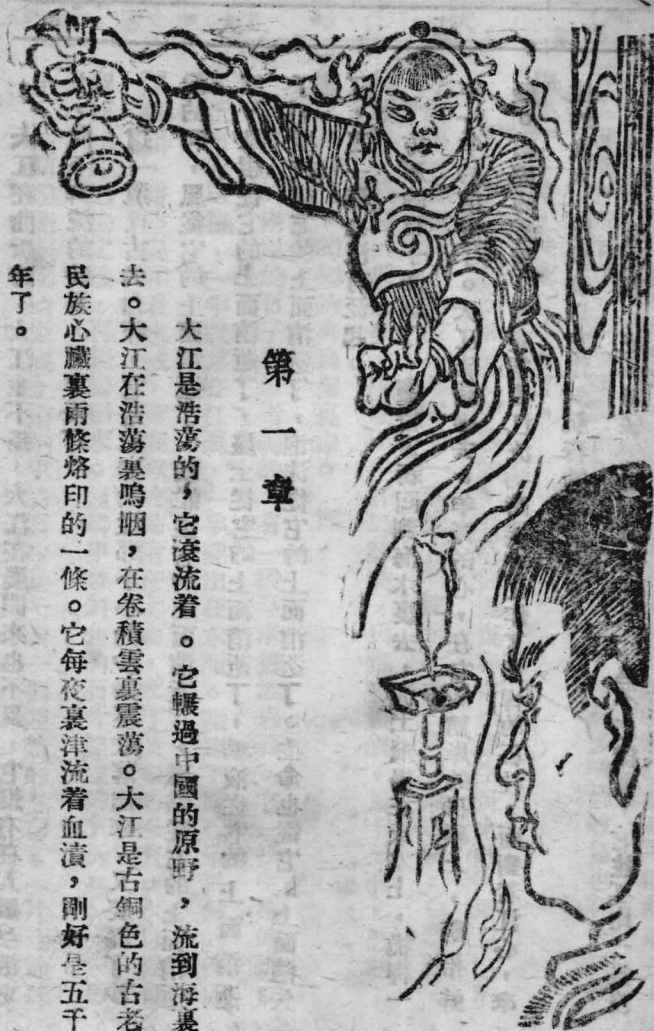 第一章
大江是浩蕩的，它滾流着。它輾過中國的原野，流到海裏
去。大江在浩蕩裏嗚咽，在卷積雲裏震蕩。大江是古銅色的古老
民族心臟裏兩條烙印的一條。它每夜裏津流着血漬，剛好是五千
年了。